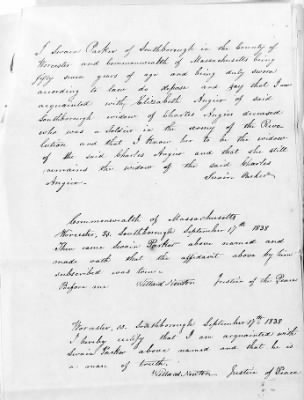 I Swain Parker of Southborough in the County of
Worcester and Commonwealth of Massachusetts being
fifty seven years of age and being duly sworn
according to law do depose and say that I am
acquainted with Elizabeth Angier of said
Southborough widow of Charles Angier deceased
who was a Soldier in the army of the Revo
lution and that I know her to be the widow
of the said Charles Angier and that she still
remains the widow of the said Charles
Angier. Swain Parker
Commonwealth of Massachusetts
Worcester, ss. Southborough September 17th 1838
Then came Swain Parker above named and
made oath that the affidavit above by him
subscribed was true.
Before me Willard Newton Justice of the Peace
Worcester, ss. Southborough September 17th 1838
I hereby certify that I am acquainted with
Swain Parker above named and that he is
a man of truth.
Willard Newton Justice of Peace